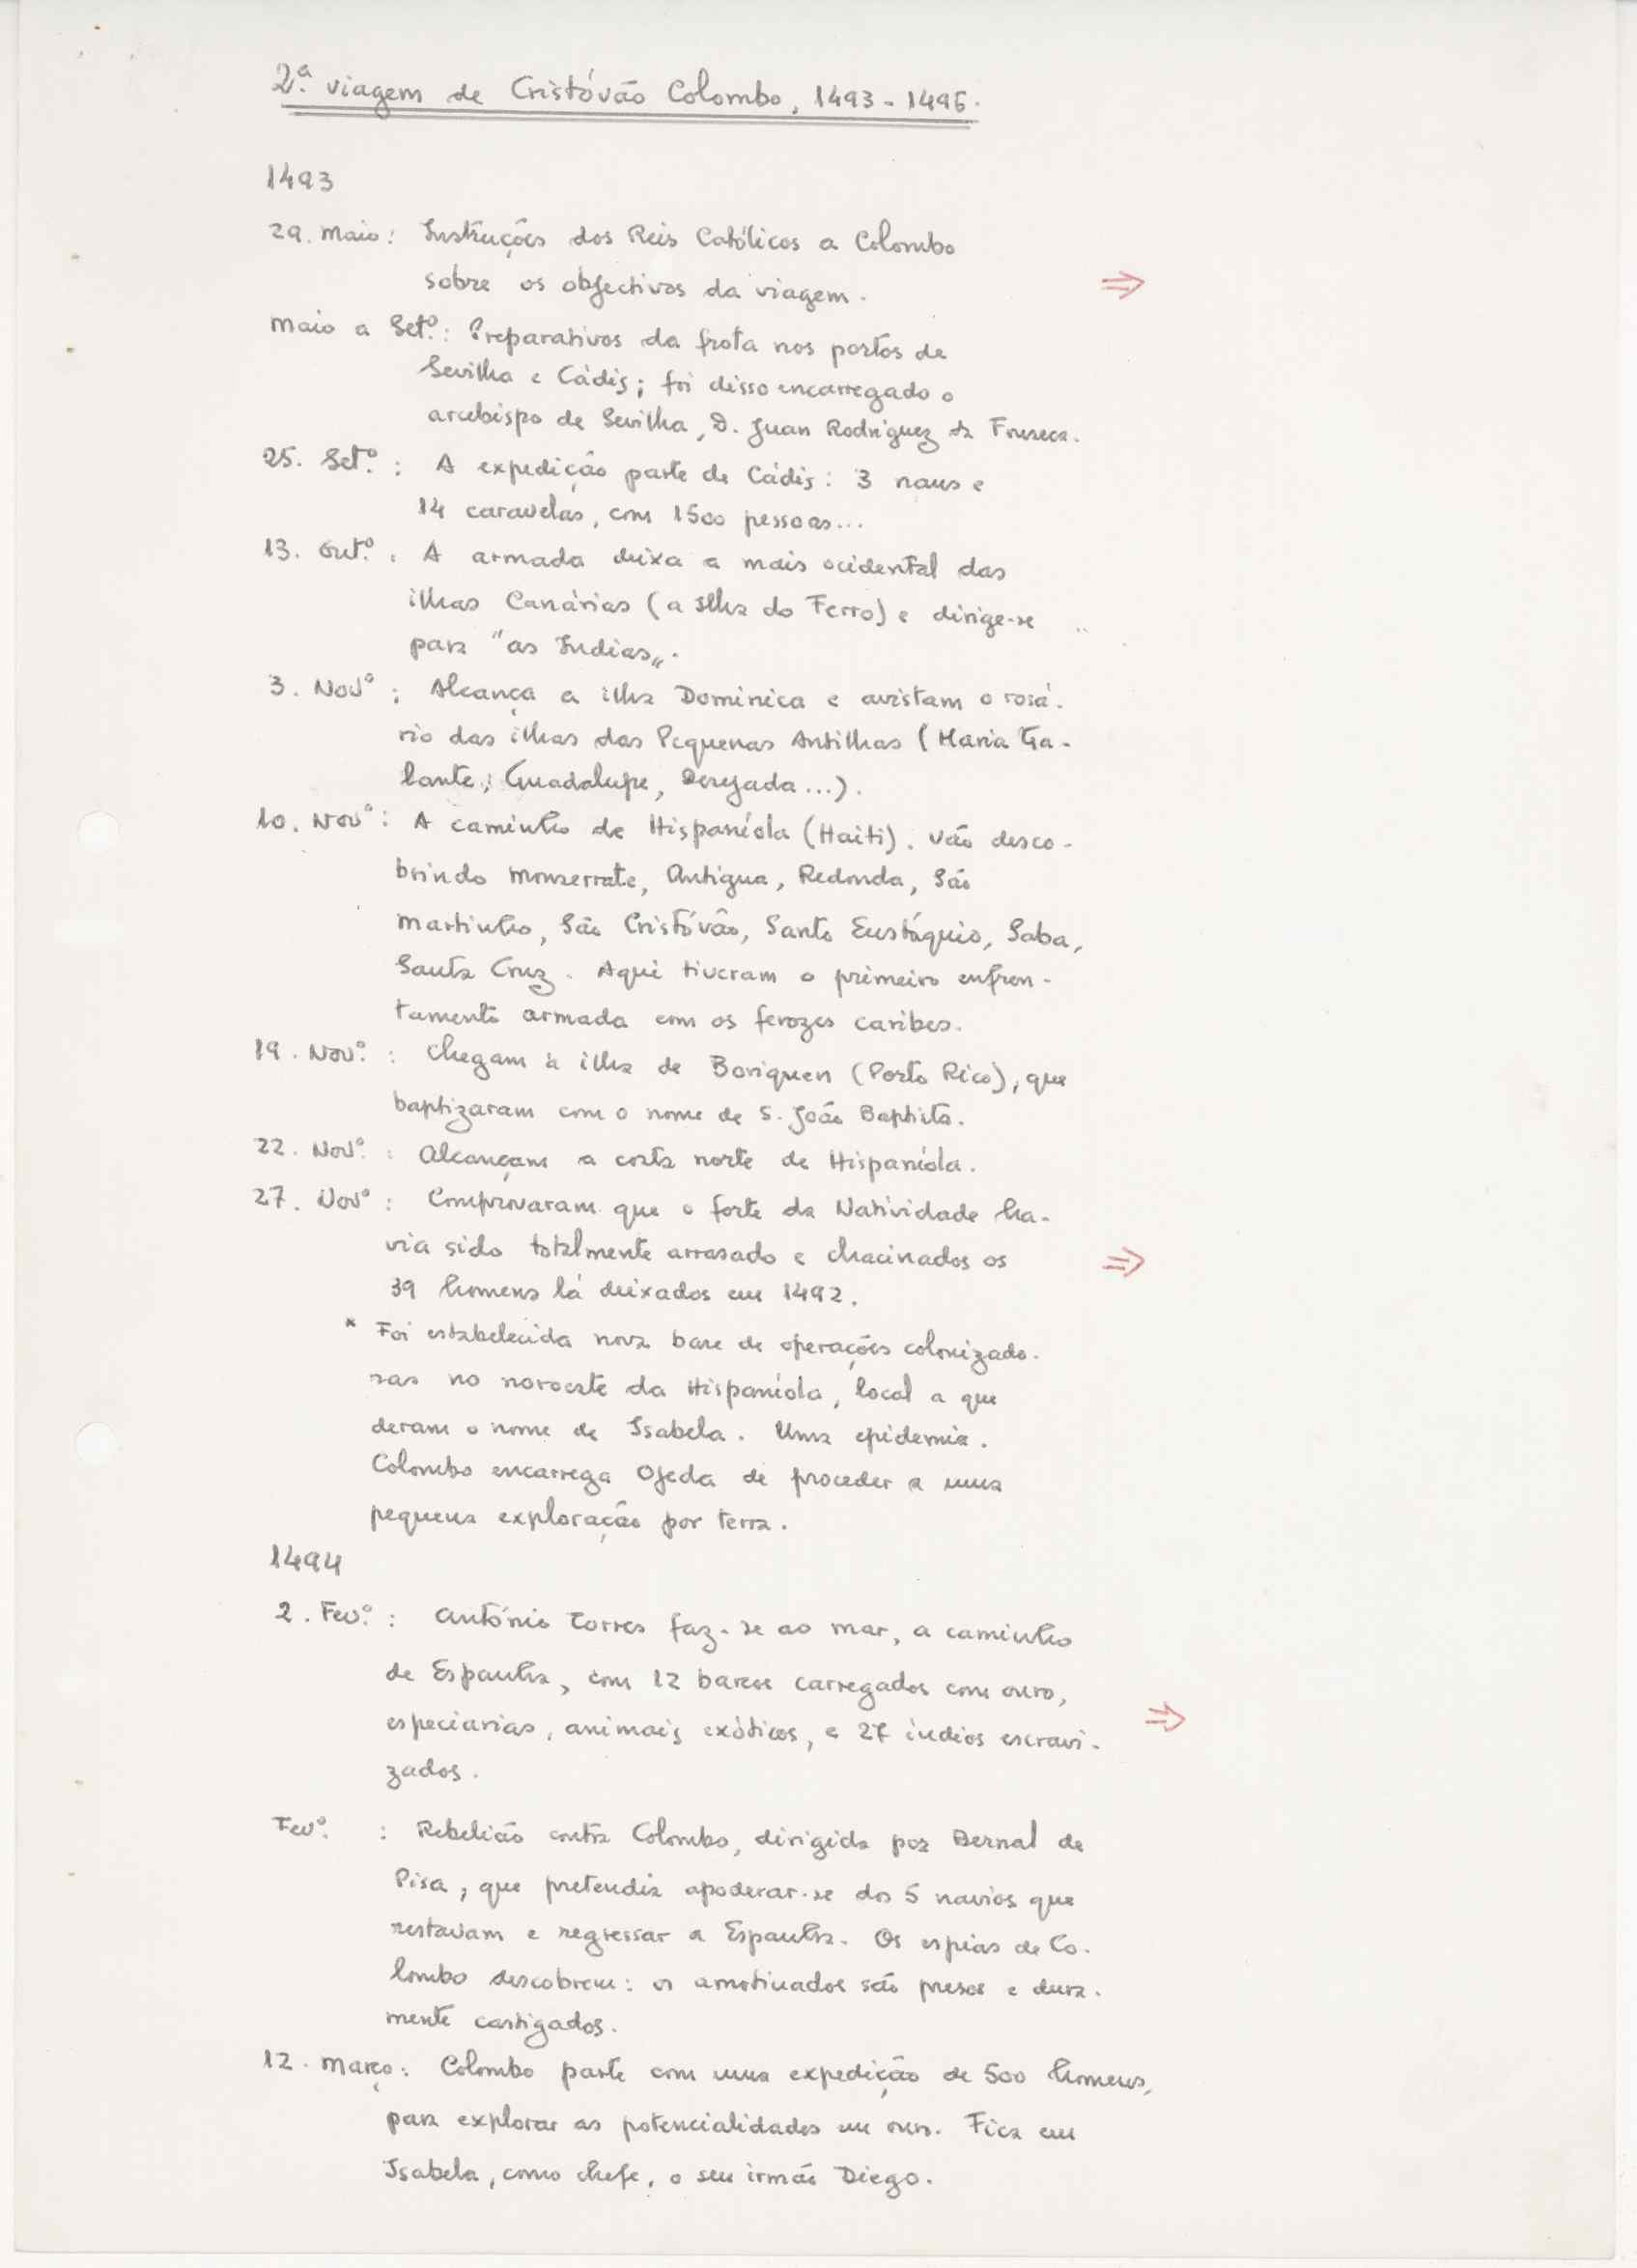 2ª. viagem de Cristóvão Colombo, 1493-1496.
1493
29. Maio: Instruções dos Reis Católicos a Colombo
sobre os objectivos da viagem.
⇒
Maio a Setº.: Preparativos da frota nos portos de
Sevilha e Cádis; foi disso encarregado o
arcebispo de Sevilha, D. Juan Rodríguez da Fonseca.
25. Setº. : A expedição parte de Cádis: 3 naus e
14 caravelas, com 1500 pessoas...
13. Outº. : A armada deixa a mais ocidental das
ilhas Canárias (a Ilha do Ferro) e dirige-se
para "as Indias„.
3. Novº : Alcança a ilha Dominica e avistam o rosá-
rio das ilhas das Pequenas Antilhas (Maria Ga-
lante, Guadalupe, Desejada...).
10. Novº: A caminho de Hispaníola (Haiti). Vão desco-
brindo Monserrate, Antigua, Redonda, São
Martinho, São Cristóvão, Santo Eustáquio, Saba,
Santa Cruz. Aqui tiveram o primeiro enfren-
tamento armada com os ferozes caribes.
19. Novº. : Chegam à ilha de Boriquen (Porto Rico), que
baptizaram com o nome de S. João Baptista.
22. Novº. : Alcançam a costa norte de Hispaníola.
27. Novº : Comprovaram que o forte da Natividade ha-
via sido totalmente arrasado e chacinados os
⇒
39 homens lá deixados em 1492.
* Foi estabelecida nova base de operações colonizado-
ras no noroeste da Hispaníola, local a que
deram o nome de Isabela. Uma epidemia.
Colombo encarrega Ojeda de proceder a uma
pequena exploração por terra.
1494
2. Fevº. : António Torres faz-se ao mar, a caminho
de Espanha, com 12 barcos carregados com ouro,
especiarias, animais exóticos, e 27 índios escravi-
⇒
zados.
Fevº. : Rebelião contra Colombo, dirigida por Bernal de
Pisa, que pretendia apoderar-se dos 5 navios que
restavam e regressar a Espanha. Os espias de Co-
lombo descobrem: os amotinados são presos e dura-
mente castigados.
12. Março: Colombo parte com uma expedição de 500 homens,
para explorar as potencialidades em ouro. Fica em
Isabela, como chefe, o seu irmão Diego.